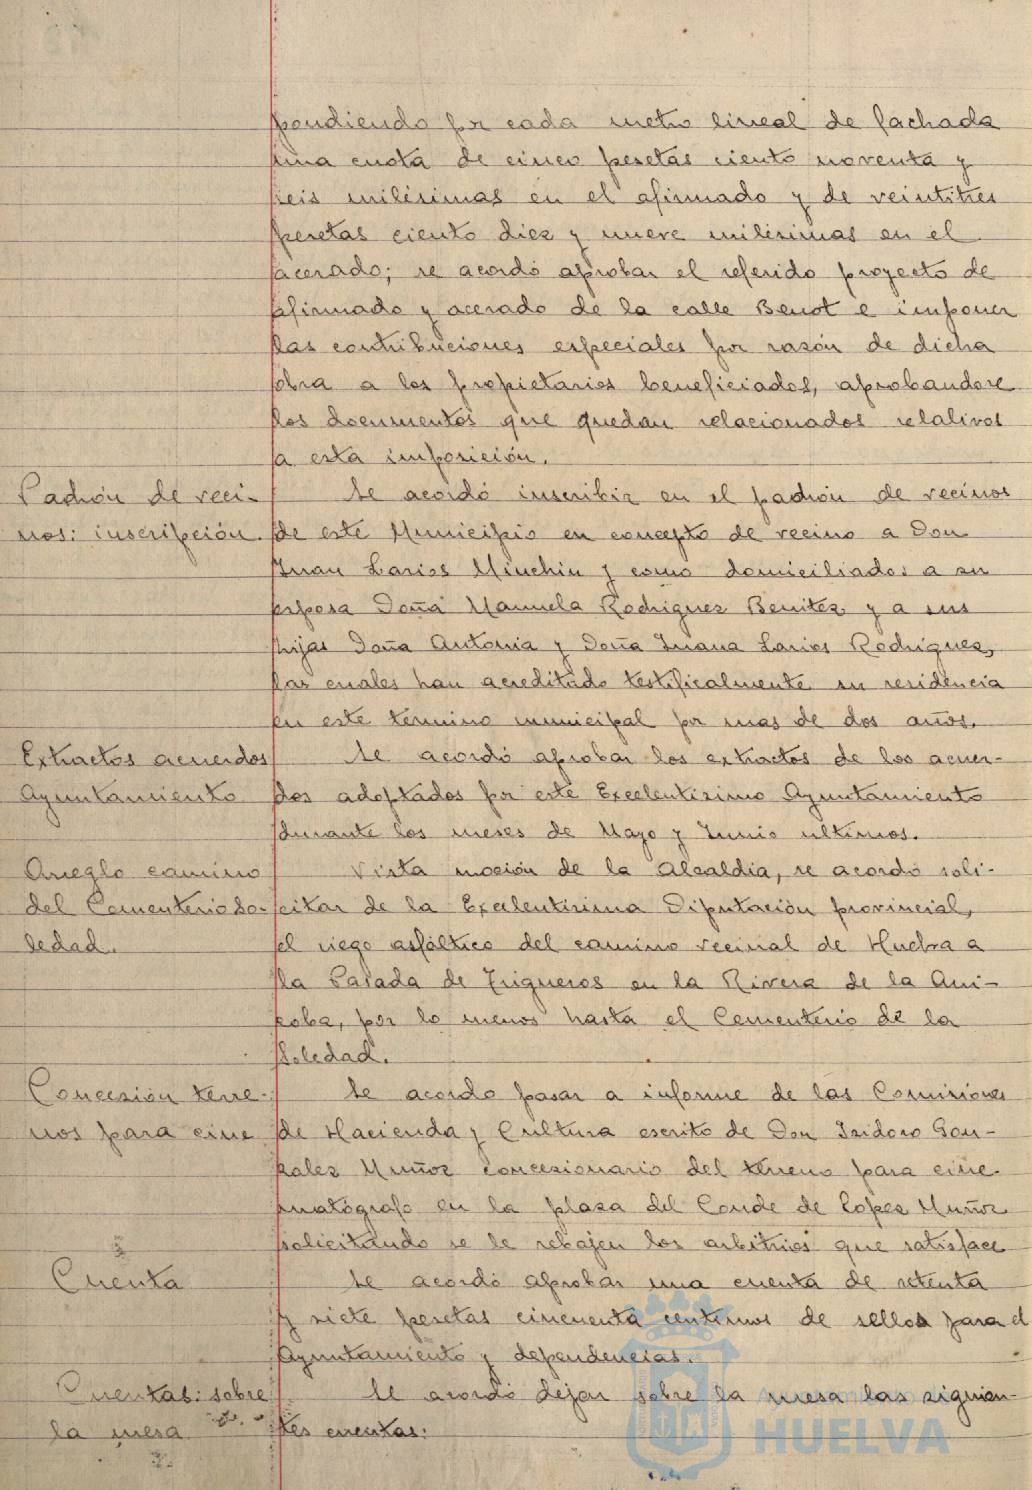 pondiendo por cada metro lineal de fachada
una cuota de cinco pesetas ciento noventa y
seis milésimas en el afirmado y de veintitres
pesetas ciento diez y nueve milésimas en el
acerado; se acordó aprobar el referido proyecto de
afirmado y acerado de la calle Benot e imponer
las contribuciones especiales por razón de dicha
obra a los propietarios beneficiados, aprobandose
los documentos que quedan relacionados relativos
a esta imposición.
Padrón de veci-
nos: inscripción.
Se acordó inscribir en el padrón de vecinos
de este Municipio en concepto de vecino a Don
Juan Larios Minchin y como domiciliados a su
esposa Doña Manuela Rodriguez Benitez y a sus
hijas Doña Antonia y Doña Juana Larios Rodriguez,
las cuales han acreditado testificalmente su residencia
en este termino municipal por mas de dos años.
Extractos acuerdos
Ayuntamiento
Se acordó aprobar los extractos de los acuer-
dos adoptados por este Excelentisimo Ayuntamiento
durante los meses de Mayo y Junio ultimos.
Arreglo camino
del Cementerio So-
ledad.
Vista moción de la Alcaldia, se acordó soli-
citar de la Excelentisima Diputación provincial,
el riego asfáltico del camino vecinal de Huelva a
la Pasada de Trigueros en la Rivera de la Ani-
coba, por lo menos hasta el Cementerio de la
Soledad.
Concesión terre-
nos para cine
Se acordo pasar a informe de las Comisiones
de Hacienda y Cultura escrito de Don Isidoro Gon-
zalez Muñoz concesionario del terreno para cine-
matógrafo en la plaza del Conde de Lopez Muñoz
solicitando se le rebajen los arbitrios que satisface
Cuenta
Se acordó aprobar una cuenta de setenta
y siete pesetas cincuenta centimos de sellos para el
Ayuntamiento y dependencias.
Cuentas: sobre
la mesa
Se acordó dejar sobre la mesa las siguien-
tes cuentas:
HUELVA